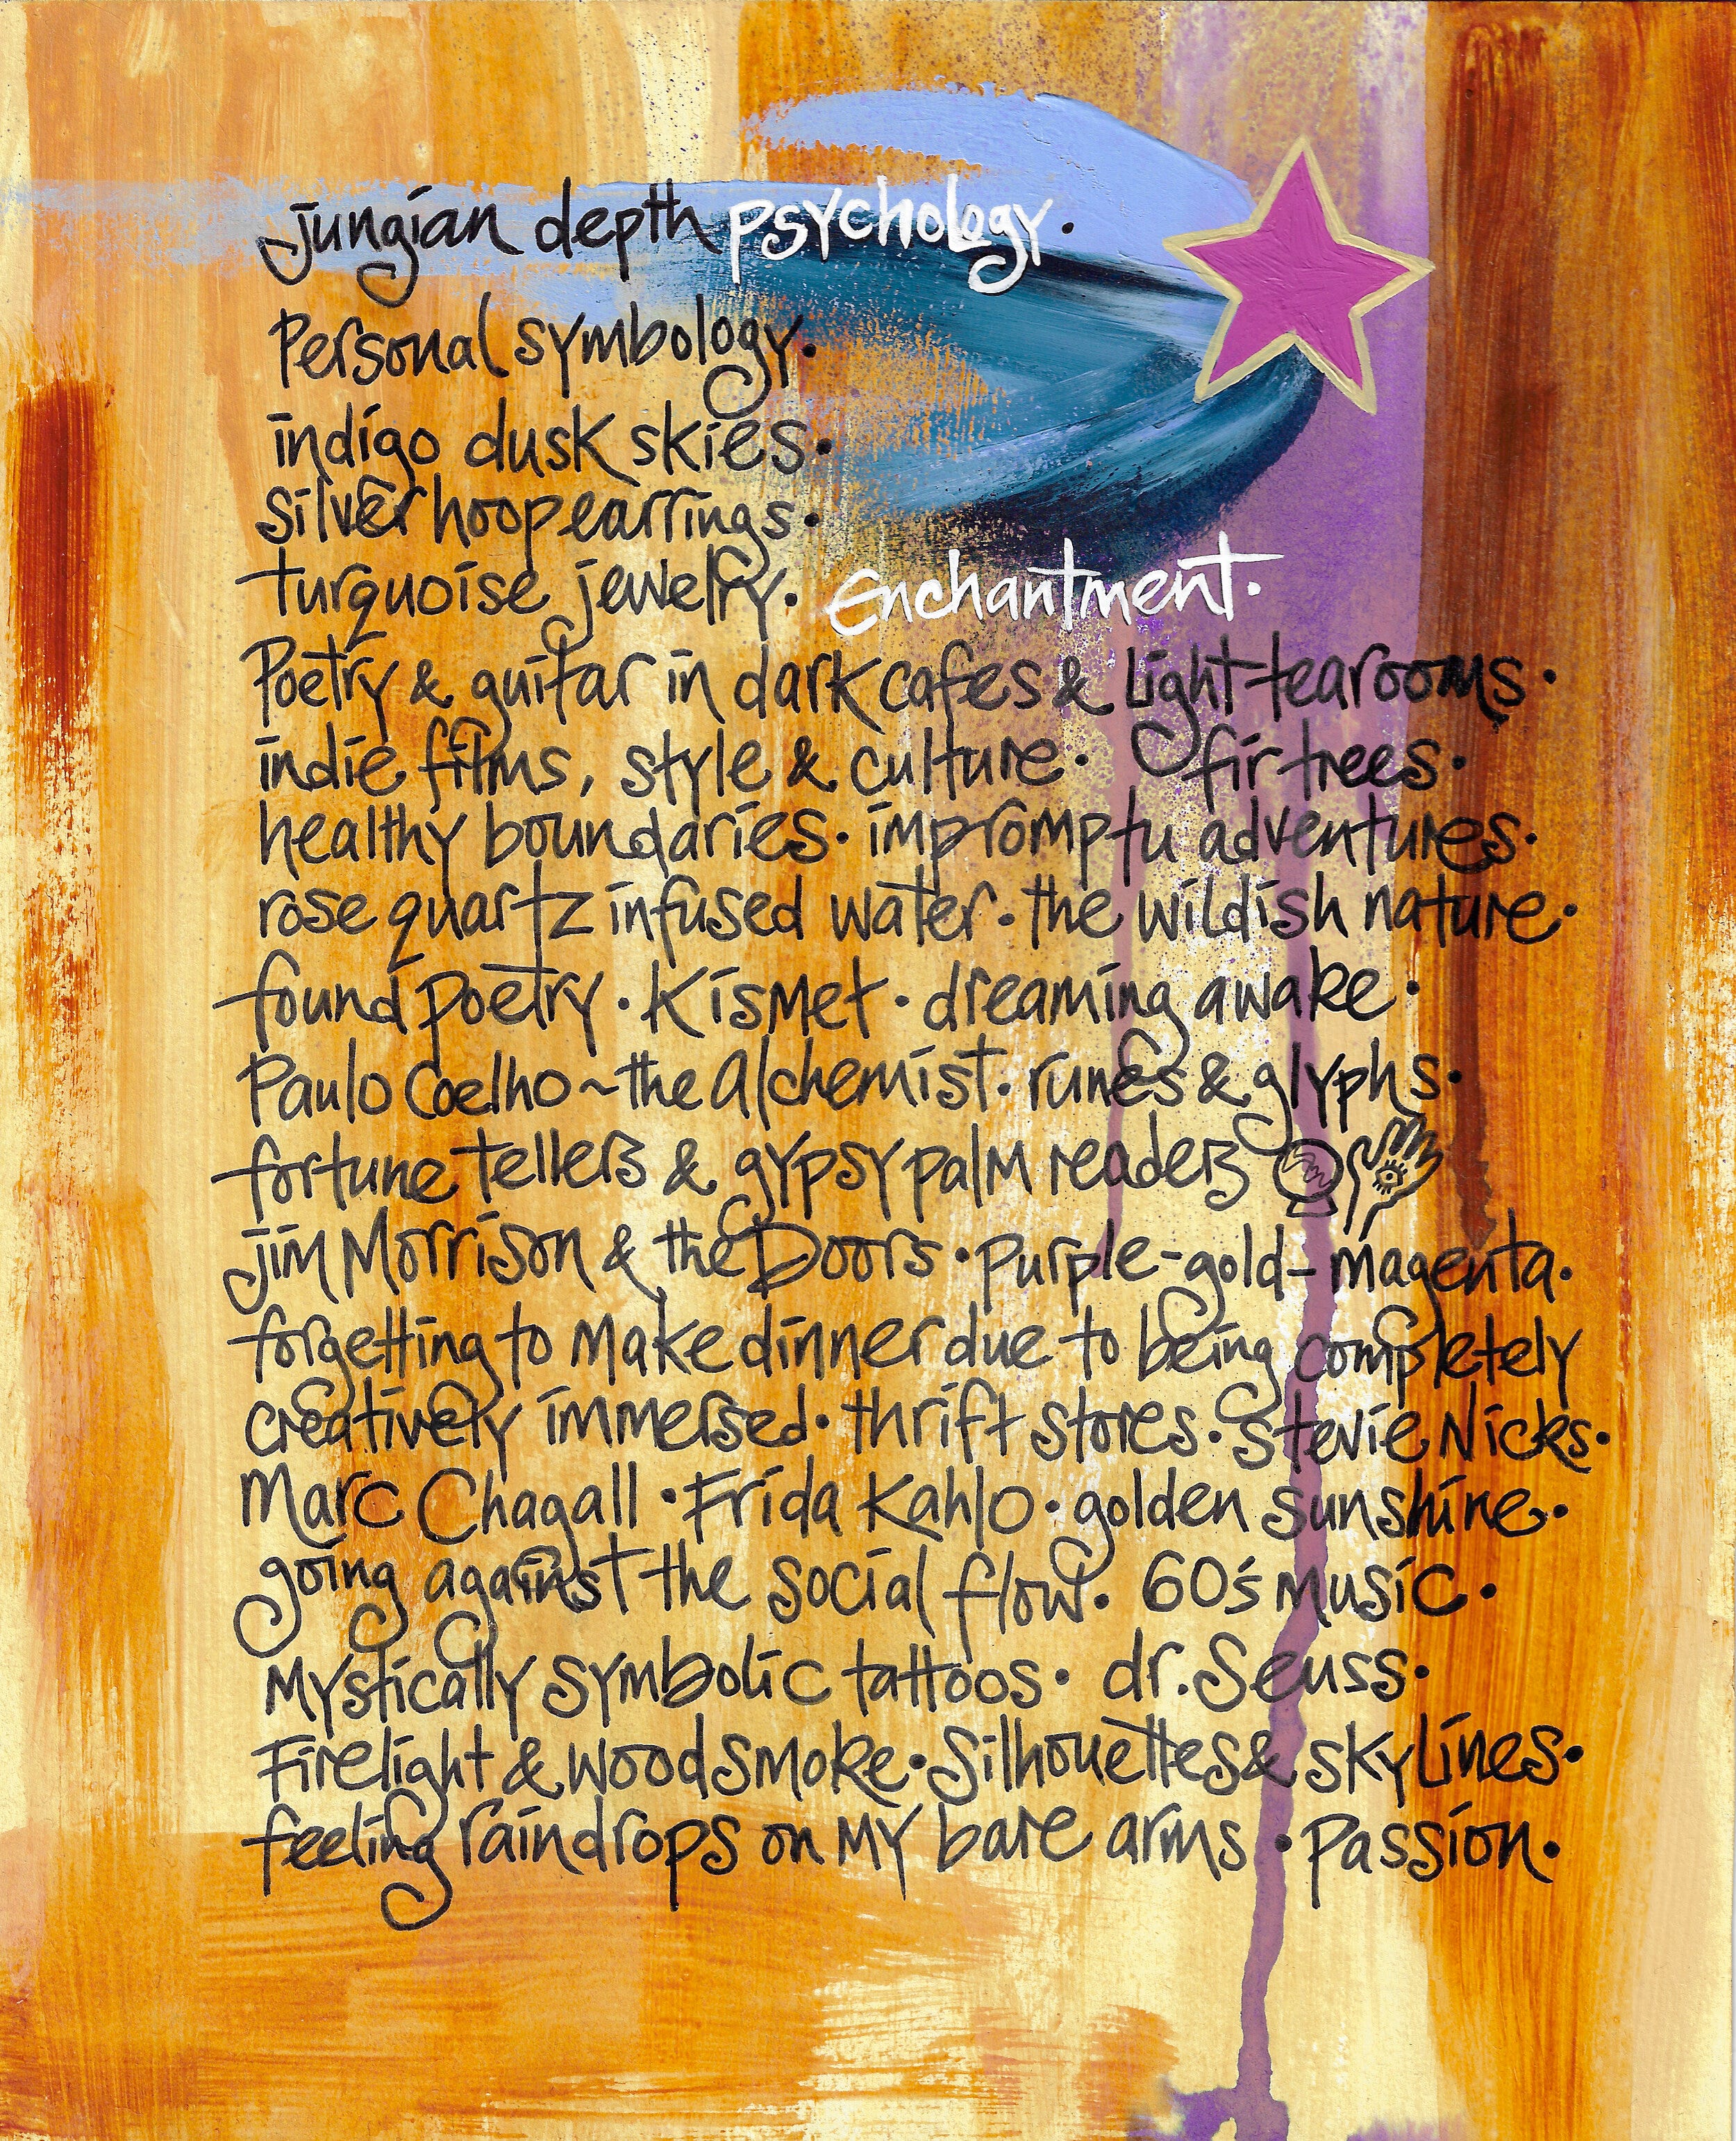 jungian depth psychology.
Personal symbology.
indigo dusk skies.
silver hoop earrings.
turquoise jewelry. Enchantment.
Poetry & guitar in dark cafes & light tearooms.
indie films, style & culture. fir trees.
healthy boundaries. impromptu adventures.
rose quartz infused water. the wildish nature.
found poetry. Kismet. dreaming awake.
Paulo Coelho ~ the Alchemist. runes & glyphs.
fortune tellers & gypsy palm readers
jim Morrison & the Doors. purple-gold-magenta.
forgetting to make dinner due to being completely
creatively immersed. thrift stores. Stevie Nicks.
Marc Chagall. Frida Kahlo. golden sunshine.
going against the social flow. 60's music.
Mystically symbolic tattoos. dr. Seuss.
Firelight & woodsmoke. Silhouettes & skylines.
feeling raindrops on my bare arms. Passion.